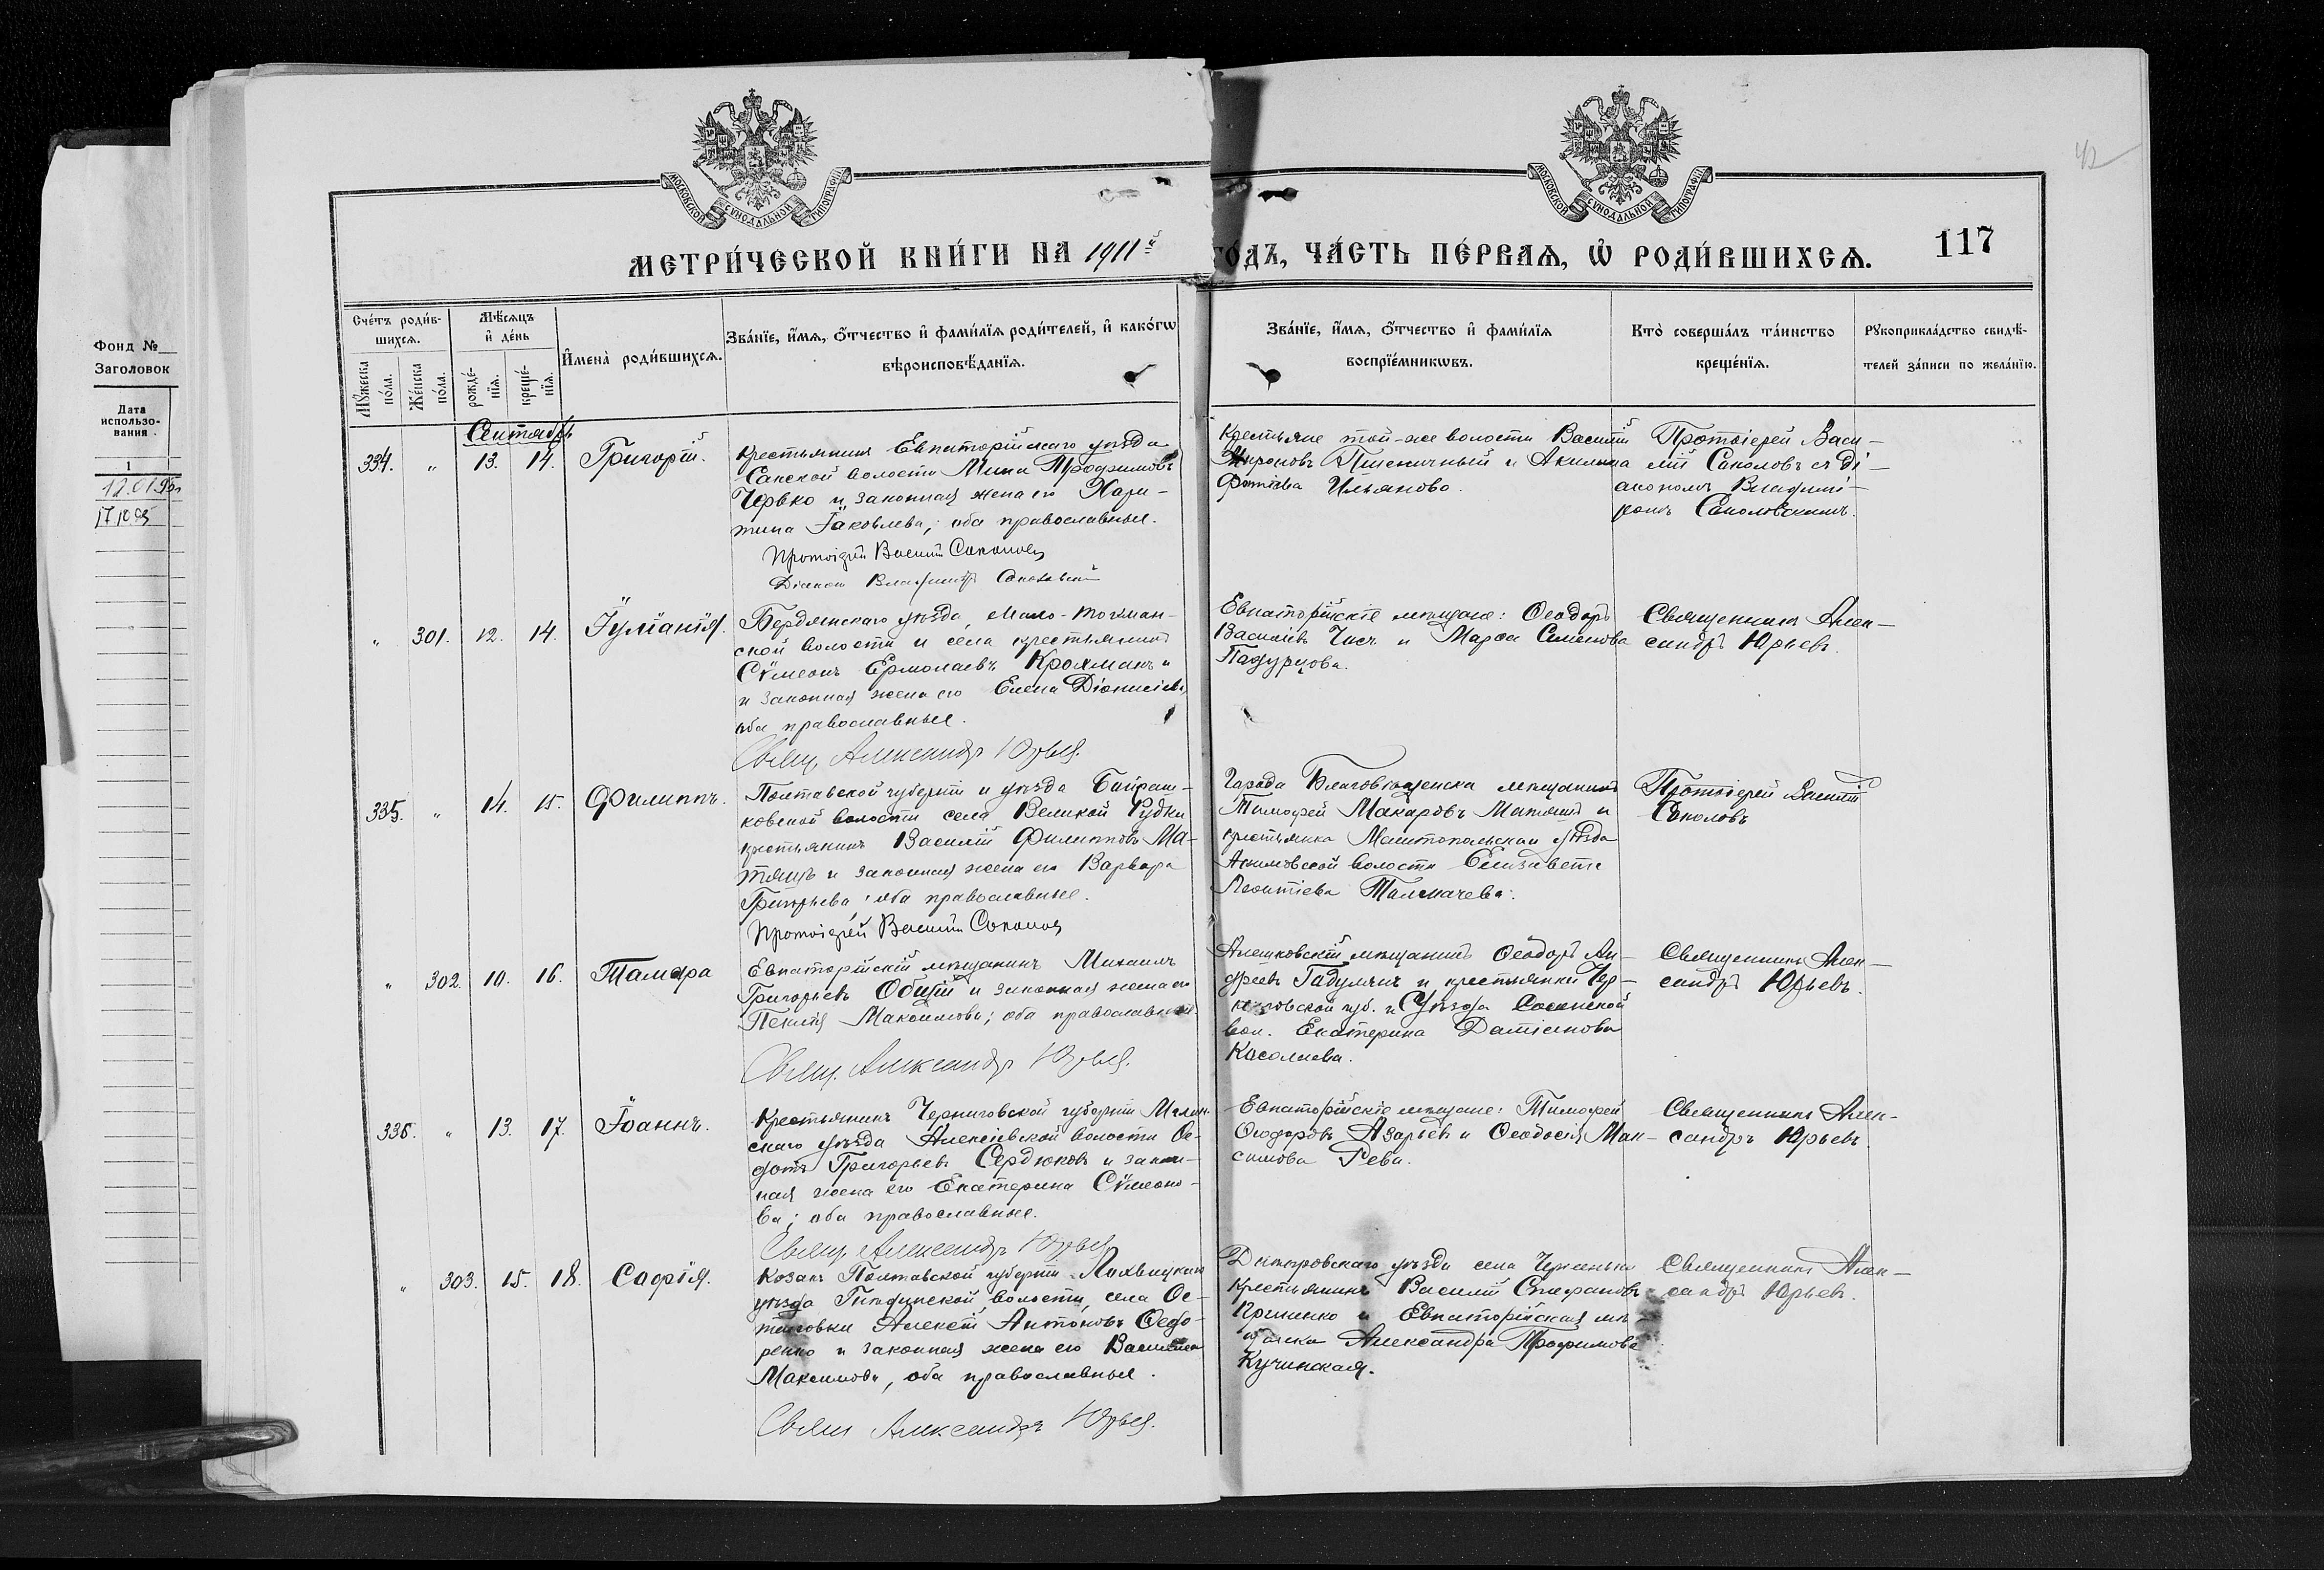 МОСКОВСКОЙ СѴНОДАЛЬНОЙ ТИПОГРАФІИ
МОСКОВСКОЙ СѴНОДАЛЬНОЙ ТИПОГРАФІИ
МЕТРИ́ЧЕСКОЙ КНИ́ГИ НА 1911й ГО́ДЪ, ЧА́СТЬ ПЕ́РВАѦ, Ѡ҆ РОДИ́ВШИХСѦ. 117
Фонд №
Заголовок
Дата
использо-
вания
1
Сче́тъ роди́в-
шихсѧ.
Мꙋ́жеска по́ла.
Же́нска по́ла.
Мѣ́сѧцъ
и҆ де́нь
рожде́-
нїѧ.
креще́-
нїѧ.
И҆мена̀ роди́вшихсѧ.
Зва́нїе, и҆́мѧ, ѻ҆́тчество и҆ фами́лїѧ роди́телей, и҆ како́гѡ
вѣроисповѣ́данїѧ.
Зва́нїе, и҆́мѧ, ѻ҆́тчество и҆ фами́лїѧ
воспрїе́мникѡвъ.
Кто̀ соверша́лъ та́инство
креще́нїѧ.
Рꙋкоприкла́дство свидѣ́-
телей за́писи по жела́нїю.
Сентябрь
334. " 13. 14. Григорій.
Крестьянинъ Евпаторійскаго уѣзда
Сакской волости Мина Трофимовъ
Черько и законная жена его Хари-
тина Іаковлева; оба православные.
Протоіерей Василій Соколовъ
Діаконъ Владиміръ Соколовскій
Крестьяне той-же волости Василій
Мироновъ Пшеничный и Акилина
Фотіева Ильяново.
Протоіерей Васи-
лій Соколовъ съ ді-
акономъ Владимі-
ромъ Соколовскимъ.
" 301. 12. 14. Іуліанія.
Бердянскаго уѣзда, Мало-Токман-
ской волости и села крестьянинъ
Сѵмеонъ Ермолаевъ Крохмань и
и законная жена его Елена Діонисіева,
оба православные.
Свящ. Александръ Юрьев.
Евпаторійскіе мѣщане: Ѳеодоръ
Василіевъ Чисъ и Марѳа Семенова
Падурцова.
Священникъ Алек-
сандръ Юрьевъ.
335. " 14. 15. Филиппъ.
Полтавской губерніи и уѣзда Байрач-
ковской волости села Великой Рудки
крестьянинъ Василій Филипповъ Ма-
тяшъ и законная жена его Варвара
Григорьева; оба православные.
Протоіерей Василій Соколов
Города Благовѣщенска мѣщанинъ
Тимофей Макаровъ Матяшъ и
крестьянка Мелитопольскаго уѣзда
Акимовской волости Елизавета
Леонтіева Толмачева.
Протоіерей Василій
Соколовъ
" 302. 10. 16. Тамара
Евпаторійскій мѣщанинъ Михаилъ
Григорьевъ Общій и законная жена его
Пеклія Максимова; оба православные.
Свящ. Александръ Юрьев.
Алешковскій мѣщанинъ Ѳеодоръ Ан-
дреевъ Гадулянъ и крестьянка Чер-
ниговской губ. и Уѣзда Сосинской
вол. Екатерина Даміанова
Косолаева.
Священникъ Алек-
сандръ Юрьевъ.
336. " 13. 17. Іоаннъ.
Крестьянинъ Черниговской губерніи Мглин-
скаго уѣзда Алексіевской волости Ѳе-
дотъ Григорьевъ Сердюковъ и закон-
ная жена его Екатерина Сѵмеоно-
ва; оба православные.
Свящ. Александръ Юрьев
Евпаторійскіе мѣщане: Тимофей
Ѳеодоровъ Азарьев и Ѳеодосія Мак-
симова Рева.
Священникъ Алек-
сандръ Юрьевъ.
" 303. 15. 18. Софія.
Козакъ Полтавской губерніи Лохвицкаго
уѣзда волости, села Ос-
таповки Алексій Антоновъ Ѳедо-
ренко и законная жена его Василиса
Максимова, оба православные.
Свящ Александръ Юрьев.
Днѣпровскаго уѣзда села Чернянки
крестьянинъ Василій Стефановъ
и Евпаторійская мѣ-
щанка Александра Трофимова
Кучинская.
Священникъ Алек-
сандръ Юрьев.